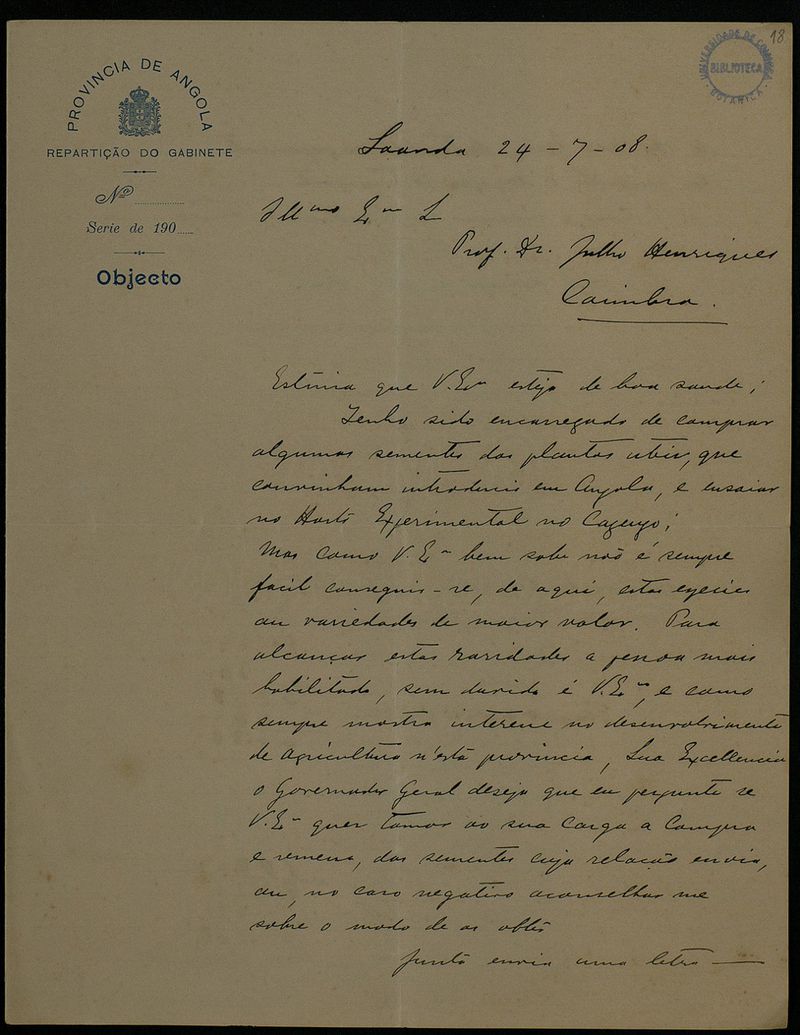 18
UNIVERSIDADE DE COIMBRA
BIBLIOTECA
BOTANICA
PROVINCIA DE ANGOLA
REPARTIÇÃO DO GABINETE
Nº
Serie de 190
Objecto
Loanda 24-7-08.
Illmo Exm S
Prof. Dr. Julho Henriques
Coimbra.
Estimo que V. Exa esteja de boa saude;
Tenho sido encarregado de comprar
algumas sementes das plantas uteis, que
convinham introduzir em Angola, e ensaiar
no Horto Experimental no Cazengo;
Mas como V. Ea bem sabe não é sempre
facil conseguir-se, de aqui, estas especies
ou variedades de maior valor. Para
alcançar estas raridades a pessoa mais
habilitada, sem duvida é V. Ea, e como
sempre mostra interesse no desenvolvimento
de Agricultura n'esta provincia, Sua Excellencia
o Governador Geral deseja que eu pergunte se
V. Ea quer tomar ao sua carga a compra
e remessa, das sementes cuja relação envio,
ou, no caso negativo aconselhar me
sobre o modo de as obter
Junto envio uma letra —